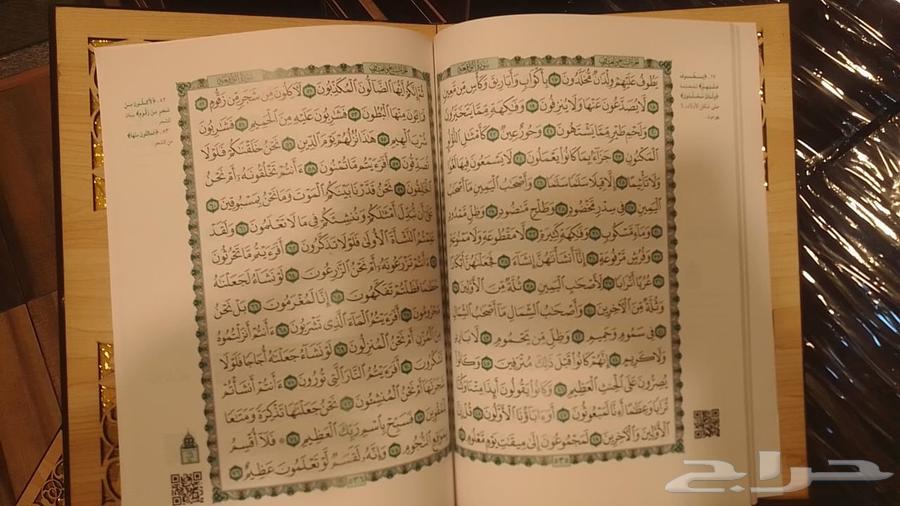 يَطُوفُ عَلَيْهِمْ وِلْدَانٌ مُّخَلَّدُونَ ١٧ بِأَكْوَابٍ وَأَبَارِيقَ وَكَأْسٍ مِّن مَّعِينٍ
١٨ لَّا يُصَدَّعُونَ عَنْهَا وَلَا يُنزِفُونَ ١٩ وَفَاكِهَةٍ مِّمَّا يَتَخَيَّرُونَ
٢٠ وَلَحْمِ طَيْرٍ مِّمَّا يَشْتَهُونَ ٢١ وَحُورٌ عِينٌ ٢٢ كَأَمْثَالِ اللُّؤْلُؤِ
الْمَكْنُونِ ٢٣ جَزَاءً بِمَا كَانُوا يَعْمَلُونَ ٢٤ لَا يَسْمَعُونَ فِيهَا لَغْوًا
وَلَا تَأْثِيمًا ٢٥ إِلَّا قِيلًا سَلَامًا سَلَامًا ٢٦ وَأَصْحَابُ الْيَمِينِ مَا أَصْحَابُ
الْيَمِينِ ٢٧ فِي سِدْرٍ مَّخْضُودٍ ٢٨ وَطَلْحٍ مَّنضُودٍ ٢٩ وَظِلٍّ مَّمْدُودٍ
٣٠ وَمَاءٍ مَّسْكُوبٍ ٣١ وَفَاكِهَةٍ كَثِيرَةٍ ٣٢ لَّا مَقْطُوعَةٍ وَلَا مَمْنُوعَةٍ
٣٣ وَفُرُشٍ مَّرْفُوعَةٍ ٣٤ إِنَّا أَنشَأْنَاهُنَّ إِنشَاءً ٣٥ فَجَعَلْنَاهُنَّ أَبْكَارًا
٣٦ عُرُبًا أَتْرَابًا ٣٧ لِّأَصْحَابِ الْيَمِينِ ٣٨ ثُلَّةٌ مِّنَ الْأَوَّلِينَ
٣٩ وَثُلَّةٌ مِّنَ الْآخِرِينَ ٤٠ وَأَصْحَابُ الشِّمَالِ مَا أَصْحَابُ الشِّمَالِ
٤١ فِي سَمُومٍ وَحَمِيمٍ ٤٢ وَظِلٍّ مِّن يَحْمُومٍ ٤٣ لَّا بَارِدٍ
وَلَا كَرِيمٍ ٤٤ إِنَّهُمْ كَانُوا قَبْلَ ذَٰلِكَ مُتْرَفِينَ ٤٥ وَكَانُوا
يُصِرُّونَ عَلَى الْحِنثِ الْعَظِيمِ ٤٦ وَكَانُوا يَقُولُونَ أَئِذَا مِتْنَا وَكُنَّا
تُرَابًا وَعِظَامًا أَإِنَّا لَمَبْعُوثُونَ ٤٧ أَوَآبَاؤُنَا الْأَوَّلُونَ ٤٨ قُلْ إِنَّ
الْأَوَّلِينَ وَالْآخِرِينَ ٤٩ لَمَجْمُوعُونَ إِلَىٰ مِيقَاتِ يَوْمٍ مَّعْلُومٍ ٥٠
٥٣٥
ثُمَّ إِنَّكُمْ أَيُّهَا الضَّالُّونَ الْمُكَذِّبُونَ ٥١ لَآكِلُونَ مِن شَجَرٍ مِّن زَقُّومٍ ٥٢
فَمَالِئُونَ مِنْهَا الْبُطُونَ ٥٣ فَشَارِبُونَ عَلَيْهِ مِنَ الْحَمِيمِ ٥٤ فَشَارِبُونَ
شُرْبَ الْهِيمِ ٥٥ هَٰذَا نُزُلُهُمْ يَوْمَ الدِّينِ ٥٦ نَحْنُ خَلَقْنَاكُمْ فَلَوْلَا
تُصَدِّقُونَ ٥٧ أَفَرَأَيْتُم مَّا تُمْنُونَ ٥٨ أَأَنتُمْ تَخْلُقُونَهُ أَمْ نَحْنُ
الْخَالِقُونَ ٥٩ نَحْنُ قَدَّرْنَا بَيْنَكُمُ الْمَوْتَ وَمَا نَحْنُ بِمَسْبُوقِينَ ٦٠
عَلَىٰ أَن نُّبَدِّلَ أَمْثَالَكُمْ وَنُنشِئَكُمْ فِي مَا لَا تَعْلَمُونَ ٦١ وَلَقَدْ
عَلِمْتُمُ النَّشْأَةَ الْأُولَىٰ فَلَوْلَا تَذَكَّرُونَ ٦٢ أَفَرَأَيْتُم مَّا تَحْرُثُونَ
٦٣ أَأَنتُمْ تَزْرَعُونَهُ أَمْ نَحْنُ الزَّارِعُونَ ٦٤ لَوْ نَشَاءُ لَجَعَلْنَاهُ
حُطَامًا فَظَلْتُمْ تَفَكَّهُونَ ٦٥ إِنَّا لَمُغْرَمُونَ ٦٦ بَلْ نَحْنُ
مَحْرُومُونَ ٦٧ أَفَرَأَيْتُمُ الْمَاءَ الَّذِي تَشْرَبُونَ ٦٨ أَأَنتُمْ أَنزَلْتُمُوهُ
مِنَ الْمُزْنِ أَمْ نَحْنُ الْمُنزِلُونَ ٦٩ لَوْ نَشَاءُ جَعَلْنَاهُ أُجَاجًا فَلَوْلَا
تَشْكُرُونَ ٧٠ أَفَرَأَيْتُمُ النَّارَ الَّتِي تُورُونَ ٧١ أَأَنتُمْ أَنشَأْتُمْ
شَجَرَتَهَا أَمْ نَحْنُ الْمُنشِئُونَ ٧٢ نَحْنُ جَعَلْنَاهَا تَذْكِرَةً وَمَتَاعًا
لِّلْمُقْوِينَ ٧٣ فَسَبِّحْ بِاسْمِ رَبِّكَ الْعَظِيمِ ٧٤ ۞ فَلَا أُقْسِمُ
بِمَوَاقِعِ النُّجُومِ ٧٥ وَإِنَّهُ لَقَسَمٌ لَّوْ تَعْلَمُونَ عَظِيمٌ ٧٦
٥٣٦
حراج